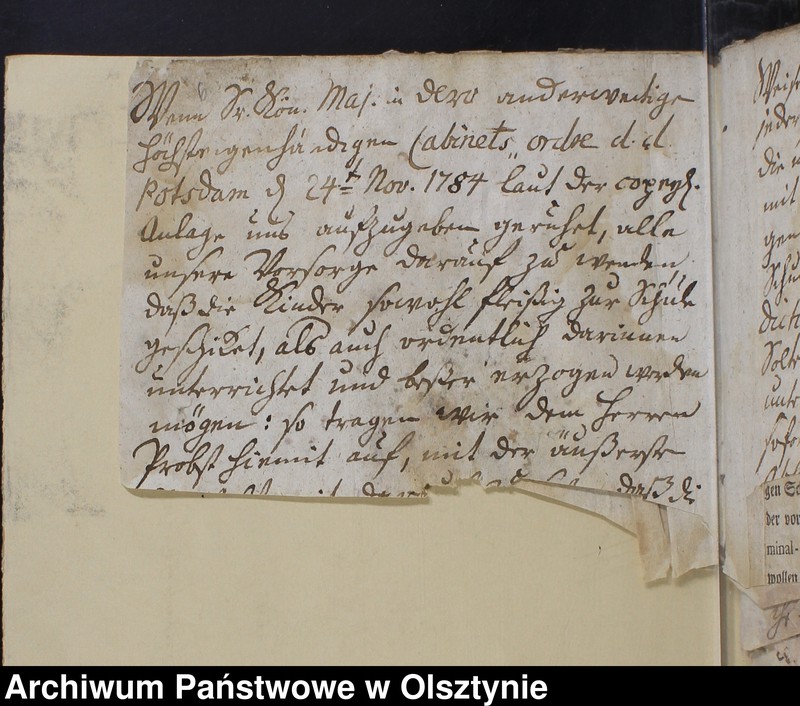 Wenn Sr. Kön. Maj. in dero anderweitige
höchsteigenhändigen Cabinets„ordre d. d.
Potsdam d 24t Nov. 1784 laut der copeyl.
Anlage uns aufzugeben geruhet, alle
unsere Vorsorge darauf zu wenden,
daß die Kinder sowohl fleißig zur Schule
geschicket, als auch ordentlich darinnen
unterrichtet und beßer erzogen werden
mögen: so tragen wir dem Herren
Probst hiemit auf, mit der äußerste
daß di
jeder
die
mit
gen
Schu
Solte
unte
sofe
gen Sc
der vor
minal-
wollen
Archiwum Państwowe w Olsztynie